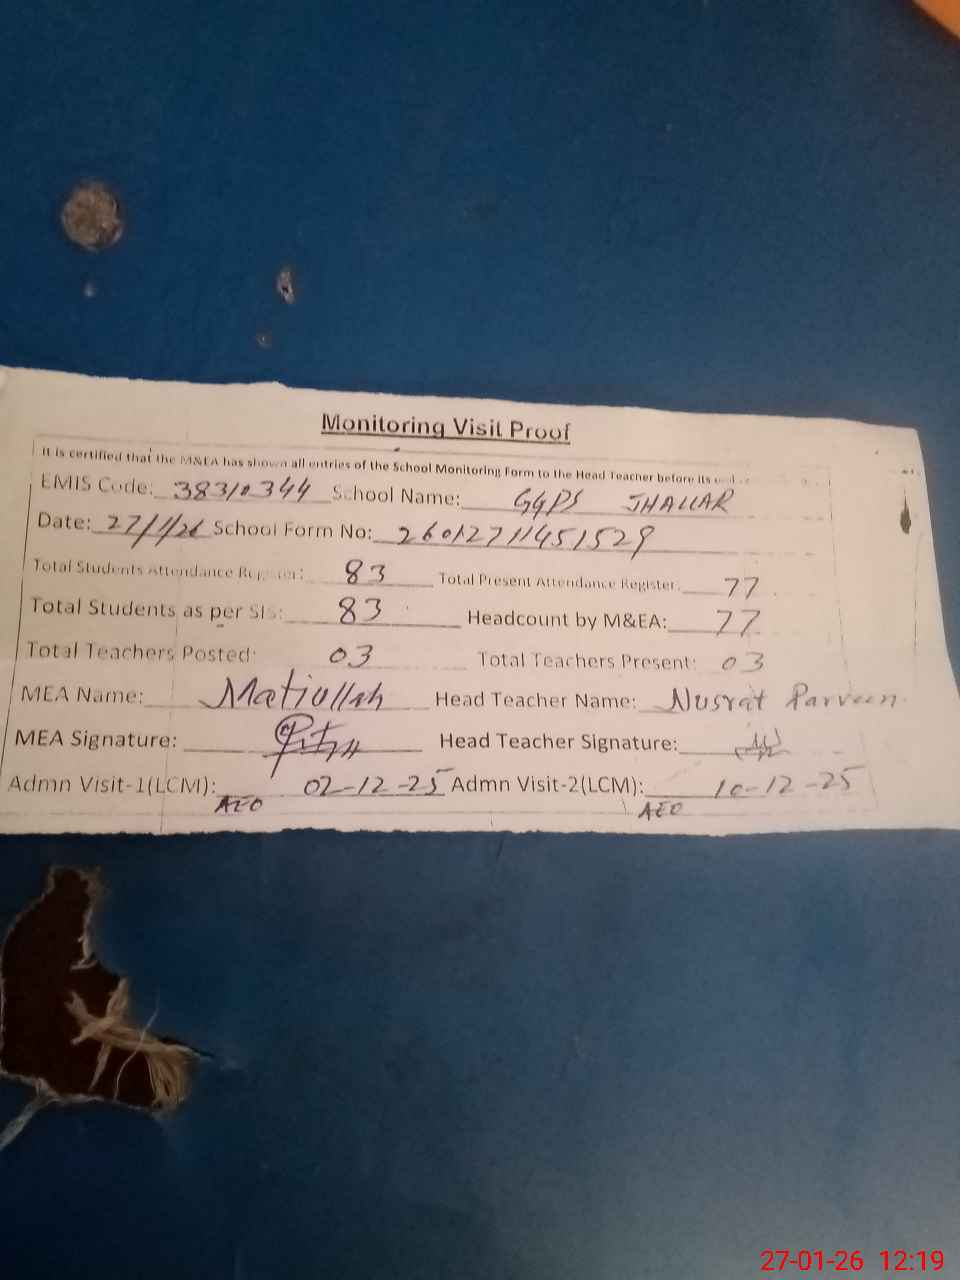 Monitoring Visit Proof
It is certified that the M&EA has shown all entries of the School Monitoring Form to the Head Teacher before its
EMIS Code: 38310344 School Name: GGPS JHALLAR
Date: 27/1/26 School Form No: 26012711451529
Total Students Attendance Register: 83 Total Present Attendance Register: 77
Total Students as per SIS: 83 Headcount by M&EA: 77
Total Teachers Posted: 03 Total Teachers Present: 03
MEA Name: Matiullah Head Teacher Name: Nusrat Parveen
MEA Signature: Head Teacher Signature:
Admn Visit-1(LCM): 02-12-25 Admn Visit-2(LCM): 10-12-25
AEO AEO
27-01-26 12:19